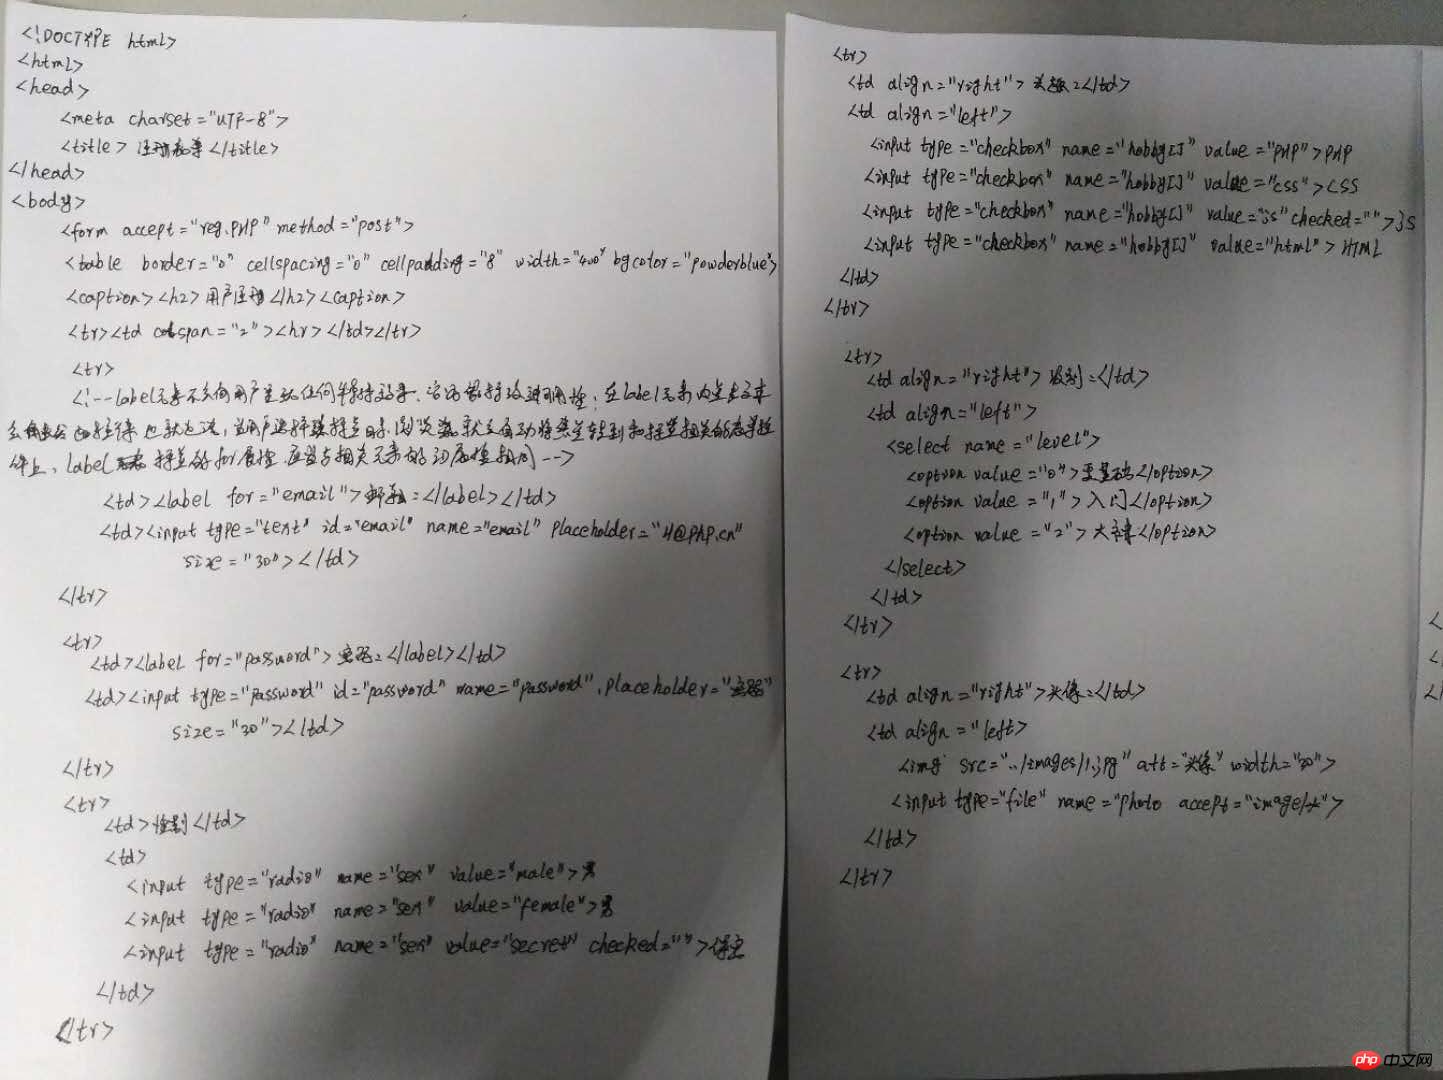 <!DOCTYPE html>
<html>
<head>
<meta charset="UTF-8">
<title>注册表单</title>
</head>
<body>
<form accept="reg.PHP" method="post">
<table border="0" cellspacing="0" cellpadding="8" width="400" bgcolor="powderblue">
<caption><h2>用户注册</h2><caption>
<tr><td colspan="2"><hr></td></tr>
<tr>
<!--label元素不会向用户呈现任何特殊效果,
label 的for属性应当与相关元素的id属性相同-->
<td><label for="email">邮箱:</label></td>
<td><input type="text" id="email" name="email" placeholder="@php.cn"
size="30"></td>
</tr>
<tr>
<td><label for="password">密码:</label></td>
<td><input type="password" id="password" name="password", placeholder="密码"
size="30"></td>
</tr>
<tr>
<td>性别</td>
<td>
<input type="radio" name="sex" value="male">男
<input type="radio" name="sex" value="female">男
<input type="radio" name="sex" value="secret" checked="">保密
</td>
</tr>
<tr>
<td align="right">:</td>
<td align="left">
<input type="checkbox" name="hobby[]" value="PHP">PHP
<input type="checkbox" name="hobby[]" value="css">CSS
<input type="checkbox" name="hobby[]" value="js" checked="">js
<input type="checkbox" name="hobby[]" value="html">HTML
</td>
</tr>
<tr>
<td align="right">级别:</td>
<td align="left">
<select name="level">
<option value="0"></option>
<option value="1">入门</option>
<option value="2">大</option>
</select>
</td>
</tr>
<tr>
<td align="right">头像:</td>
<td align="left>
<img src="../images/1.jpg" alt="头像" width="30">
<input type="file" name="photo accept="image/*">
</td>
</tr>
php 中文网